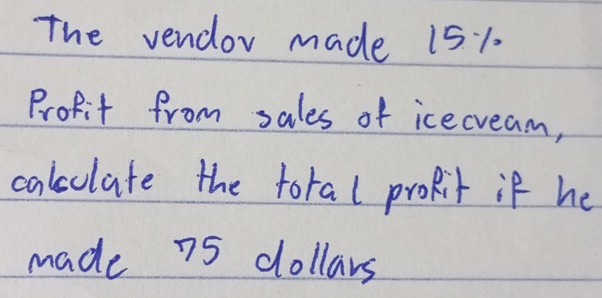 The vendor made 15%
Profit from sales of icecream,
calculate the total profit if he
made 75 dollars